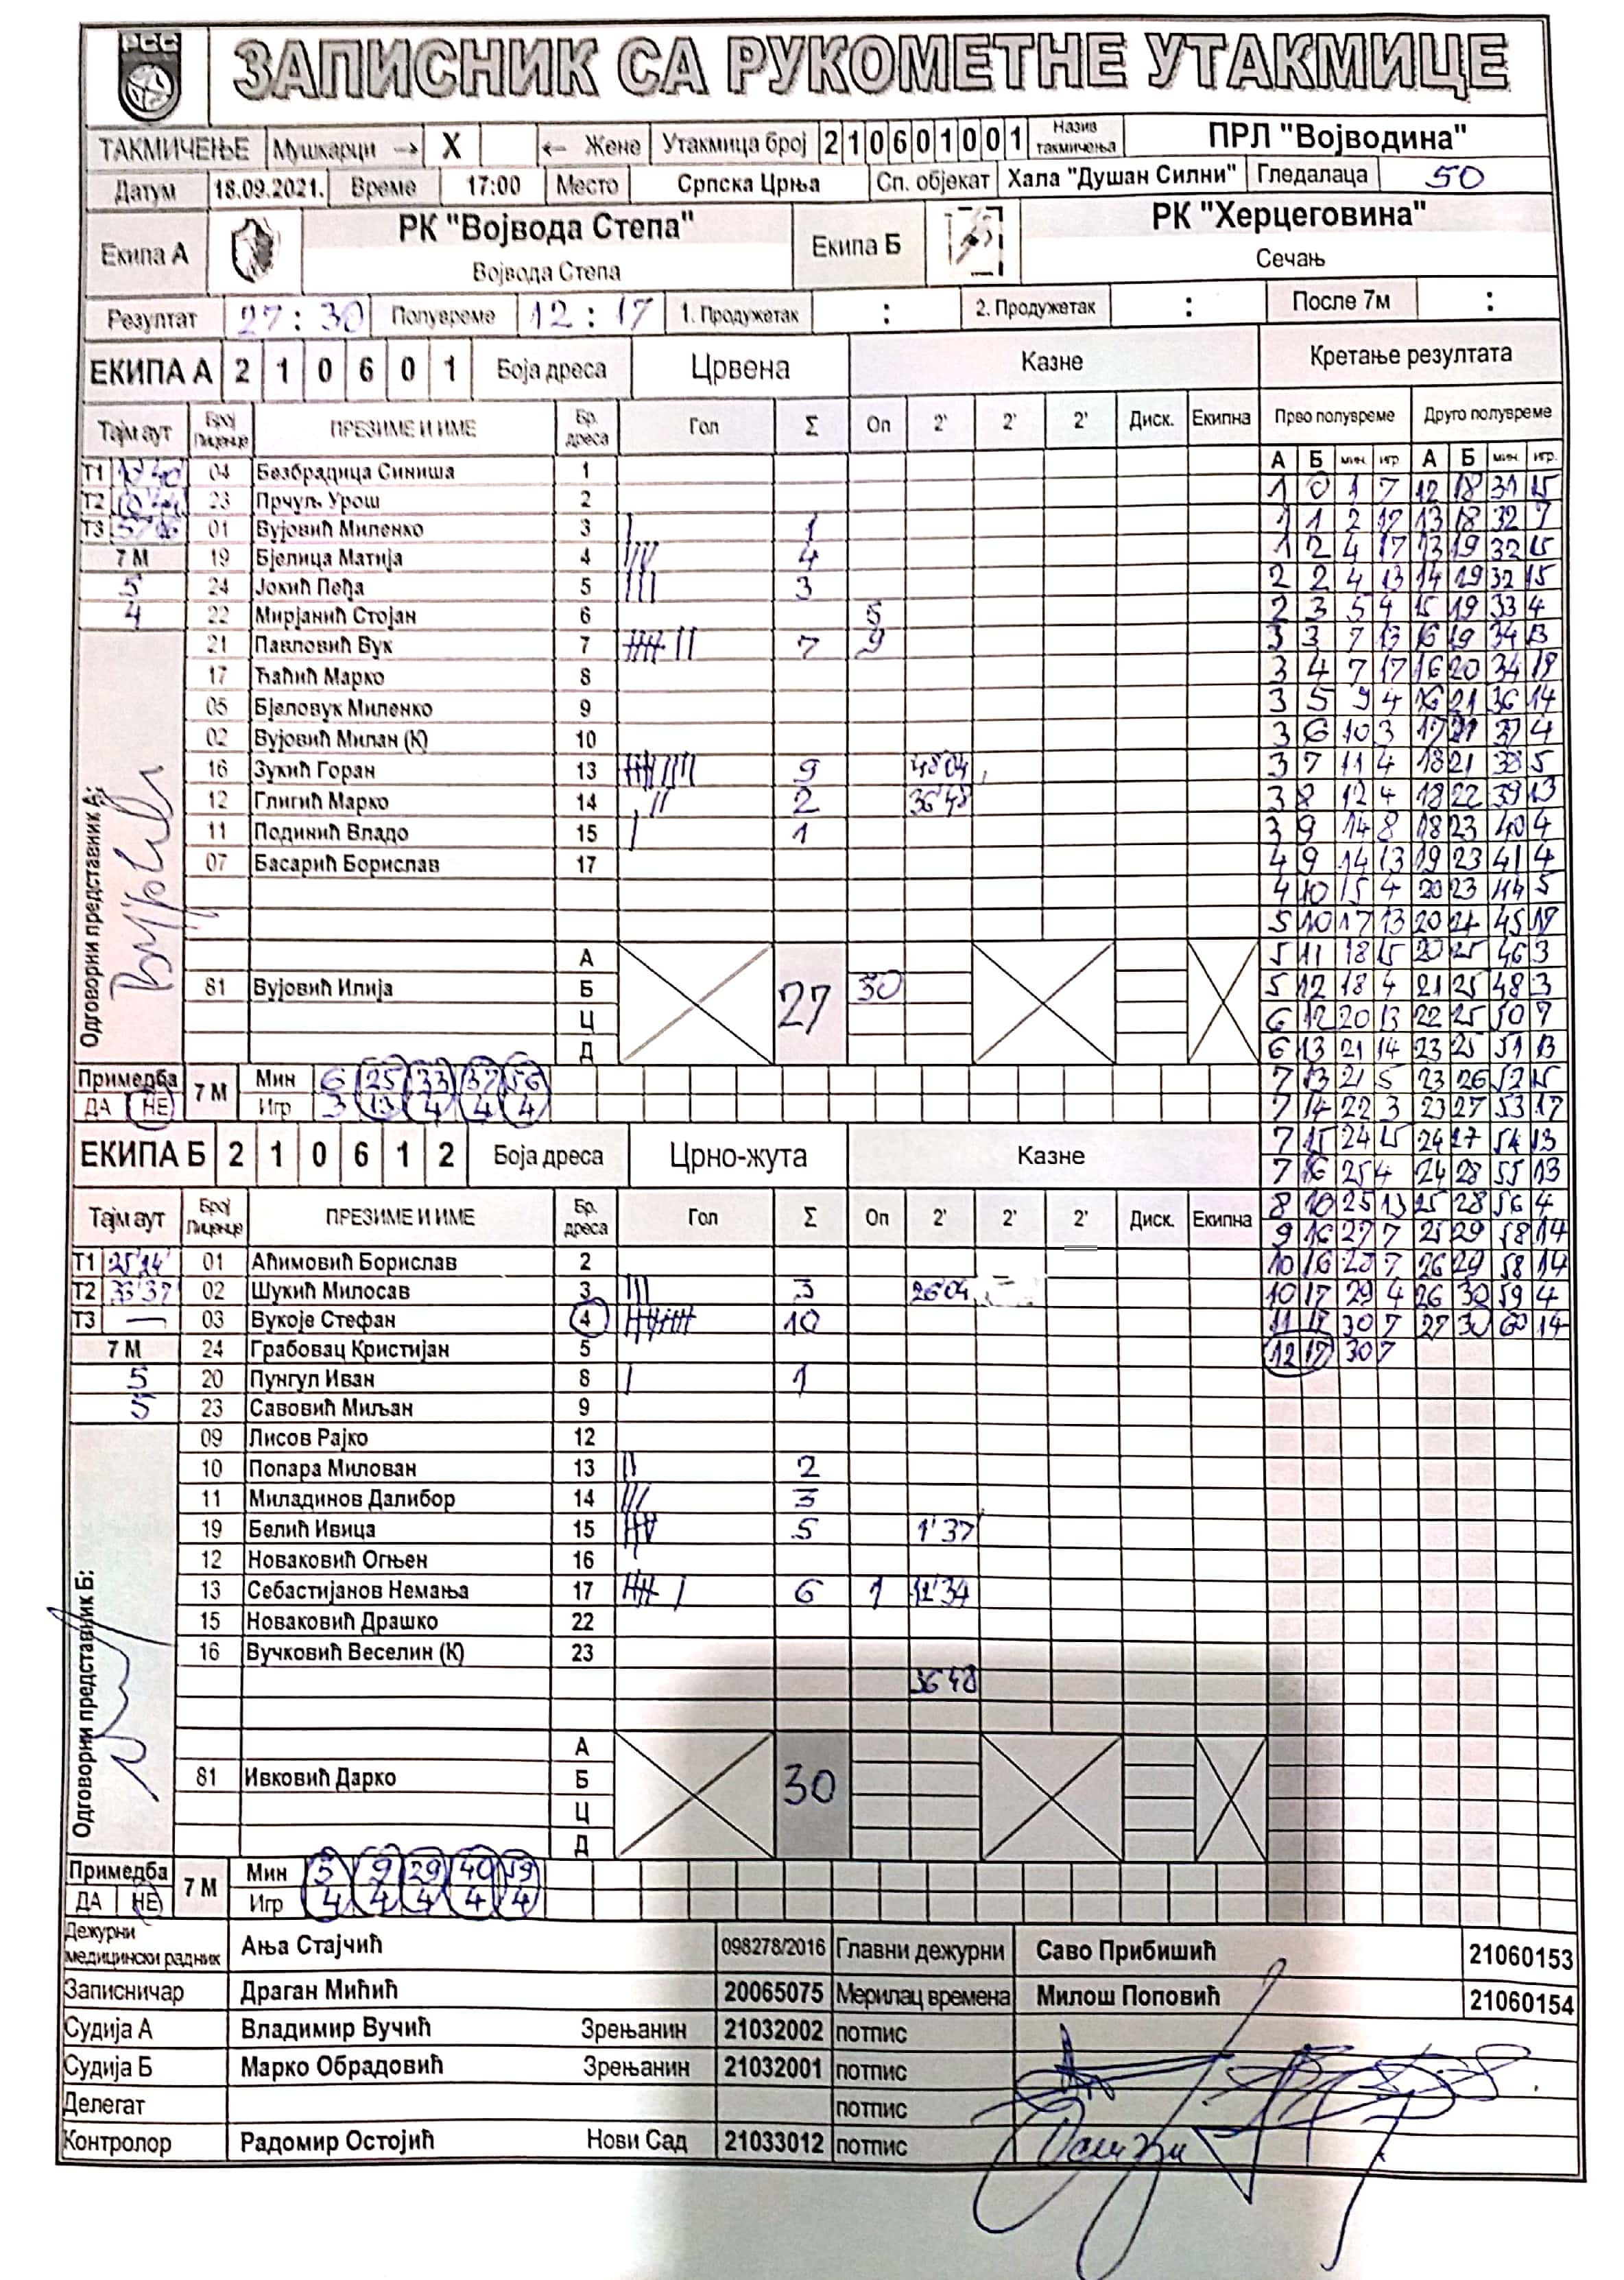 РСС
ЗАПИСНИК СА РУКОМЕТНЕ УТАКМИЦЕ
ТАКМИЧЕЊЕ Мушкарци → X ← Жене Утакмица број 2 1 0 6 0 1 0 0 1 Назив такмичења ПРЛ "Војводина"
Датум 18.09.2021. Време 17:00 Место Српска Црња Сп. објекат Хала "Душан Силни" Гледалаца 50
Екипа А РК "Војвода Степа" Екипа Б РК "Херцеговина"
Војвода Степа Сечањ
Резултат 27 : 30 Полувреме 12 : 17 1. Продужетак : 2. Продужетак : После 7м :
ЕКИПА А 2 1 0 6 0 1 Боја дреса Црвена Казне Кретање резултата
Тајм аут Број Лиценце ПРЕЗИМЕ И ИМЕ Бр. дреса Гол Σ Оп 2' 2' 2' Диск. Екипна Прво полувреме Друго полувреме
А Б мин. игр А Б мин. игр.
Т1 04 Безбрадица Синиша 1 1 0 1 7 12 18 31 15
Т2 23 Прчуљ Урош 2 1 1 2 17 13 18 32 7
Т3 01 Вујовић Миленко 3 1 1 2 4 17 13 19 32 15
7 М 19 Бјелица Матија 4 4 2 2 4 13 14 19 32 15
5 24 Јокић Пеђа 5 3 2 3 5 4 15 19 33 4
4 22 Мирјанић Стојан 6 5 3 3 7 13 16 19 34 13
21 Павловић Вук 7 7 9 3 4 7 17 16 20 34 18
17 Ћаћић Марко 8 3 5 9 4 16 21 36 14
05 Бјеловук Миленко 9 3 6 10 3 17 21 37 4
02 Вујовић Милан (К) 10 3 7 11 4 18 21 38 5
16 Зукић Горан 13 9 48 04 3 8 12 4 18 22 39 13
12 Глигић Марко 14 2 36 48 3 9 14 8 18 23 40 4
11 Подинић Владо 15 1 4 9 14 13 19 23 41 4
07 Басарић Борислав 17 4 10 15 4 20 23 44 5
5 10 17 13 20 24 45 17
Одговорни представник А:
А 5 11 18 15 20 25 46 3
81 Вујовић Илија Б 27 30 5 12 18 4 21 25 48 3
Ц 6 12 20 13 22 25 50 7
Д 6 13 21 14 23 25 51 13
Примедба 7 М Мин 6 25 33 37 56 7 13 21 5 23 26 52 15
ДА НЕ Игр 3 13 4 4 4 7 14 22 3 23 27 53 17
ЕКИПА Б 2 1 0 6 1 2 Боја дреса Црно-жута Казне 7 15 24 15 24 27 54 13
7 16 25 4 24 28 55 13
Тајм аут Број Лиценце ПРЕЗИМЕ И ИМЕ Бр. дреса Гол Σ Оп 2' 2' 2' Диск. Екипна 8 16 25 13 25 28 56 4
9 16 27 7 25 29 58 14
Т1 25'14' 01 Аћимовић Борислав 2 10 16 28 7 26 29 58 14
Т2 33'37 02 Шукић Милосав 3 3 26 04 10 17 29 4 26 30 59 4
Т3 — 03 Вукоје Стефан 4 10 11 17 30 7 27 30 60 14
7 М 24 Грабовац Кристијан 5 12 17 30 7
5 20 Пунгул Иван 8 1
5 23 Савовић Миљан 9
09 Лисов Рајко 12
10 Попара Милован 13 2
11 Миладинов Далибор 14 3
19 Белић Ивица 15 5 1'37
12 Новаковић Огњен 16
13 Себастијанов Немања 17 6 1
15 Новаковић Драшко 22
16 Вучковић Веселин (К) 23
36 48
Одговорни представник Б:
А
81 Ивковић Дарко Б 30
Ц
Д
Примедба 7 М Мин 5 9 29 40 59
ДА НЕ Игр 4 4 4 4 4
Дежурни медицински радник Ања Стајчић 098278/2016 Главни дежурни Саво Прибишић 21060153
Записничар Драган Мићић 20065075 Мерилац времена Милош Поповић 21060154
Судија А Владимир Вучић Зрењанин 21032002 потпис
Судија Б Марко Обрадовић Зрењанин 21032001 потпис
Делегат потпис
Контролор Радомир Остојић Нови Сад 21033012 потпис